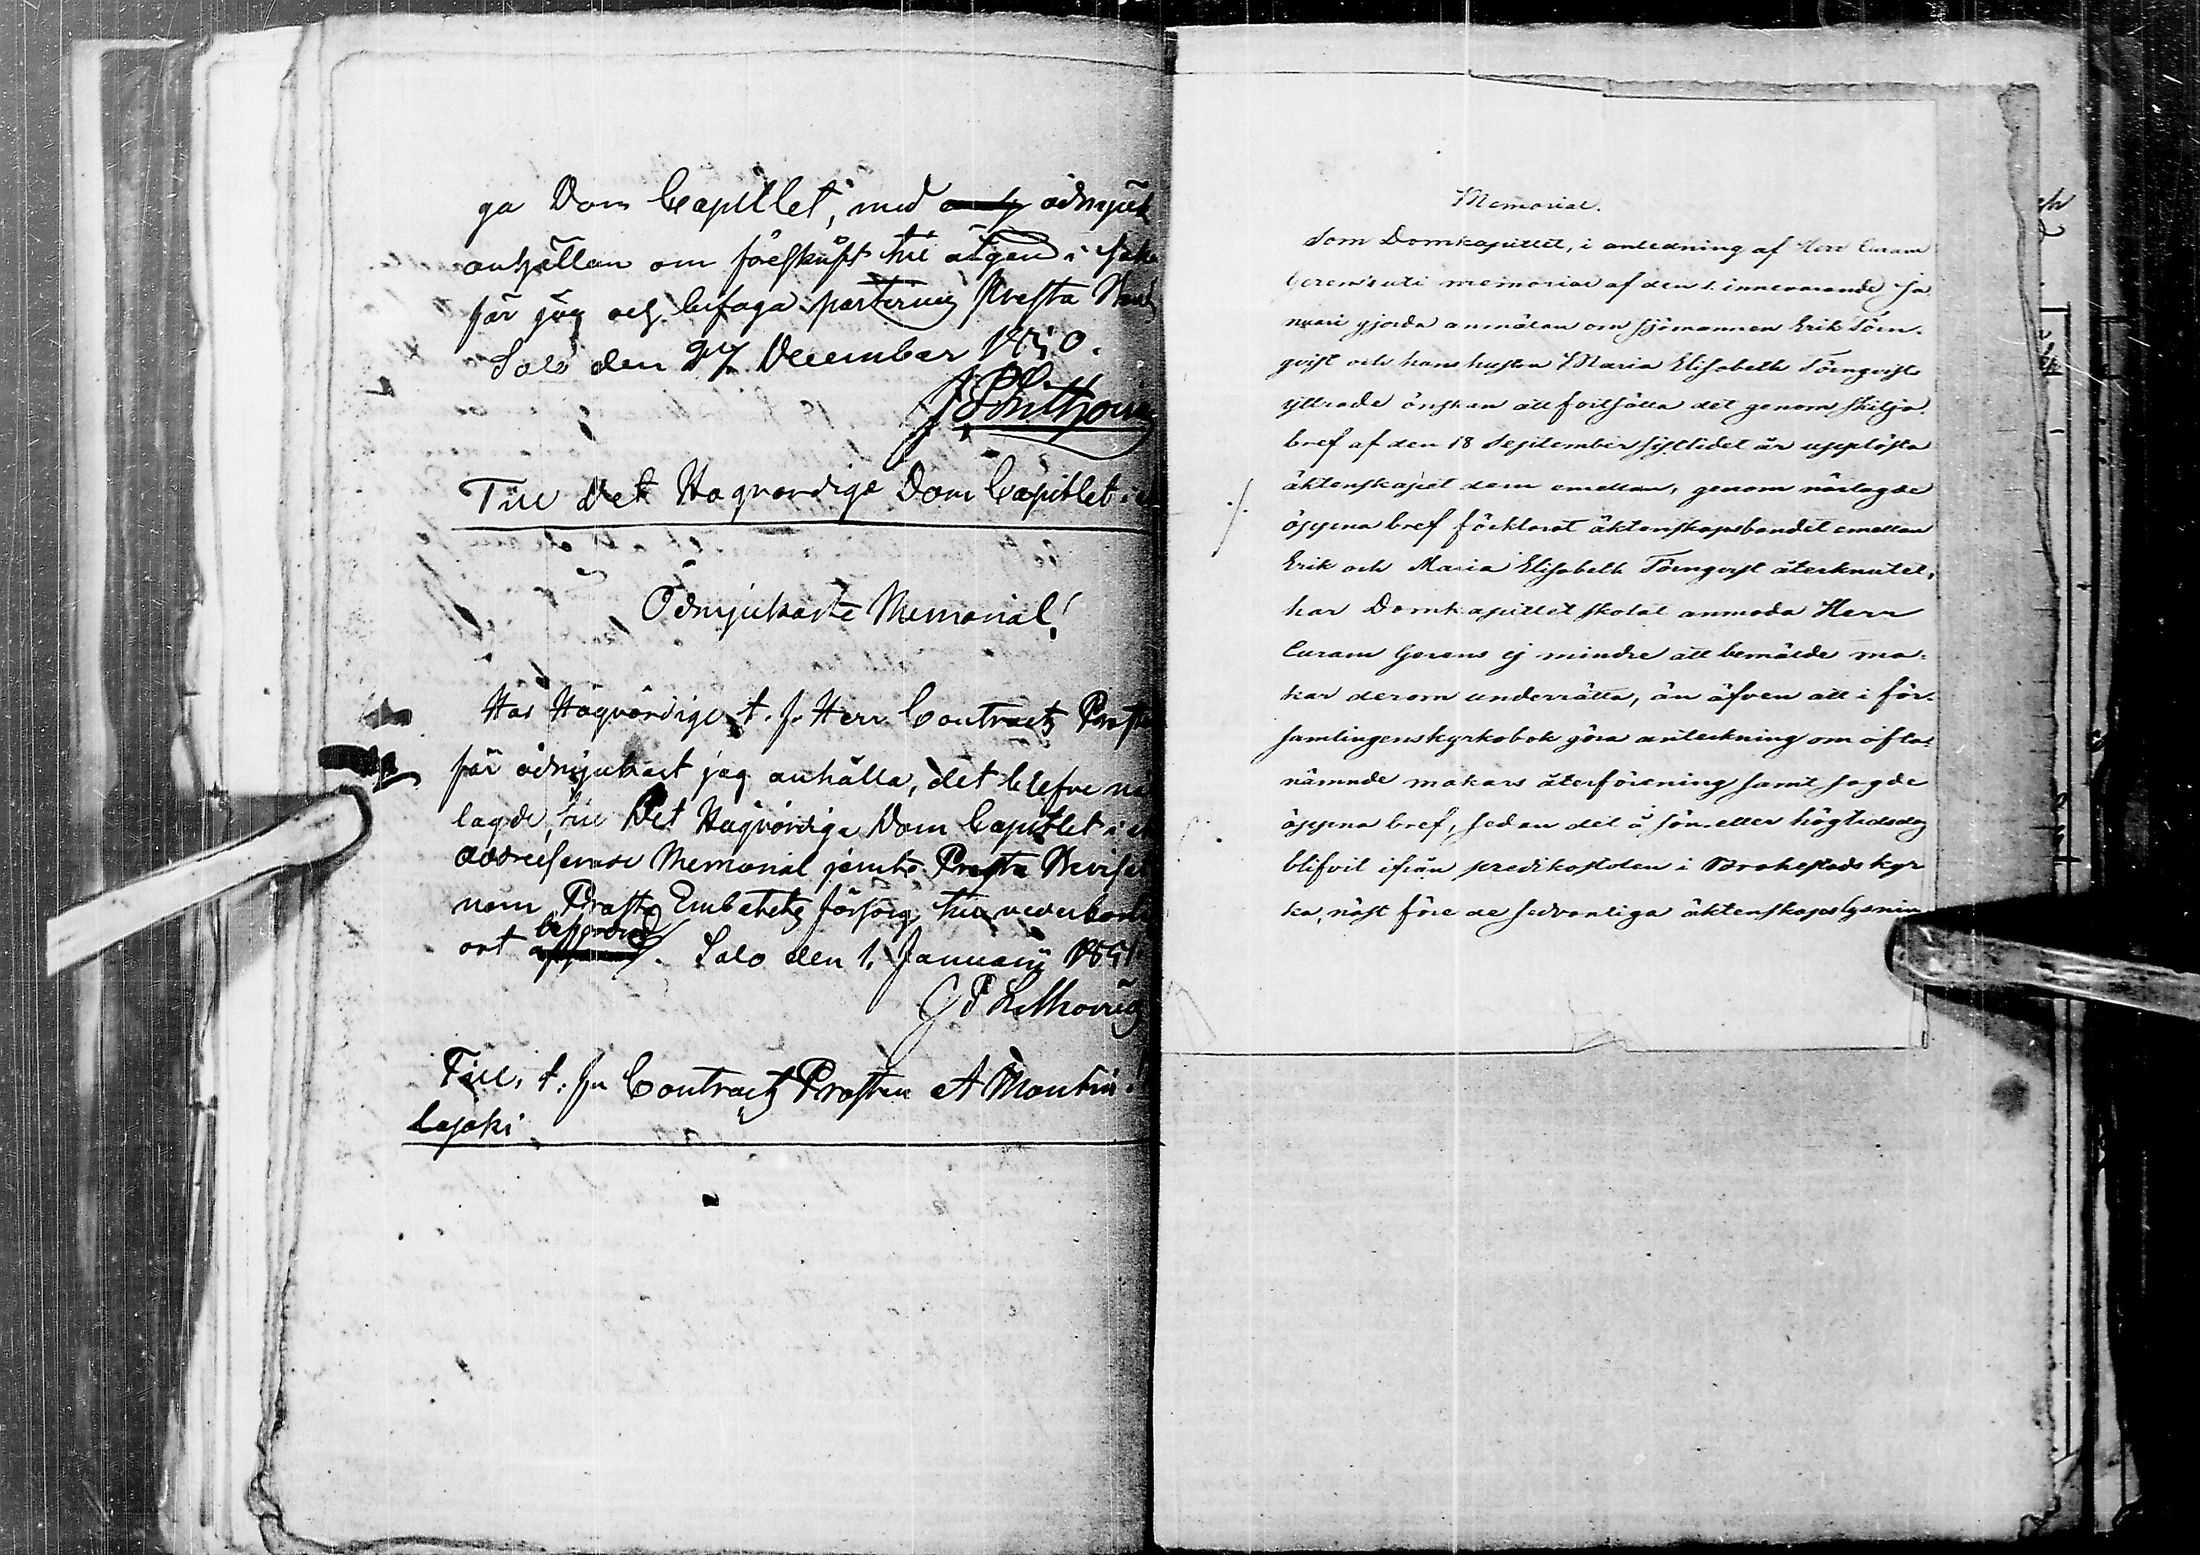 ga Dom Capitlet, med ödmjuk
anhållan om förelskrift till åtgärd i saken
får jag och bifoga
Salo den 27 December 1850.
J P Lithovius
Till Det Högvördiga Dom Capitlet i
Ödmjukaste Memorial!
Hos Högvördige t. f. Herr Contracts Prosten
får ödmjukast jag anhålla, det blefve
lagde, till Det Högvördiga Dom Capitlet i
addresserade Memorial jemte Presta
nom Prosts Embetets försorg till vederbörlig
befordrad
ort . Salo den 1. Januarii 1851.
J P Lithovius
Till, t. f. Contracts Prosten A Montin
Lajoki
Memorial.
Som Domkapitlet, i anledning af Herr Curam
Gerens uti memorial af den 1. innevarande Ja
nuari gjorda anmälan om sjömannen Erik Törn-
qvist och hans hustru Maria Elisabeth Törnqvists
yttrade önskan att fortsätta det genom skiljo-
bref af den 18 September sistlidet år upplösta
äktenskapet dem emellan, genom närlagde
öppna bref förklarat äktenskapsbandet emellan
Erik och Maria Elisabeth Törnqvist återknutet,
har Domkapitlet skolat anmoda Herr
Curam Gerens ej mindre att bemälde ma-
kar derom underrätta, än äfven att i för-
samlingens kyrkobok göra anteckning om ofta-
nämnde makars återförening samt sagde
öppna bref, sedan det å sön- eller högtidsdag
blifvit ifrån predikostolen i Brahestads kyr
ka, näst före de sedvanliga äktenskapslysnin